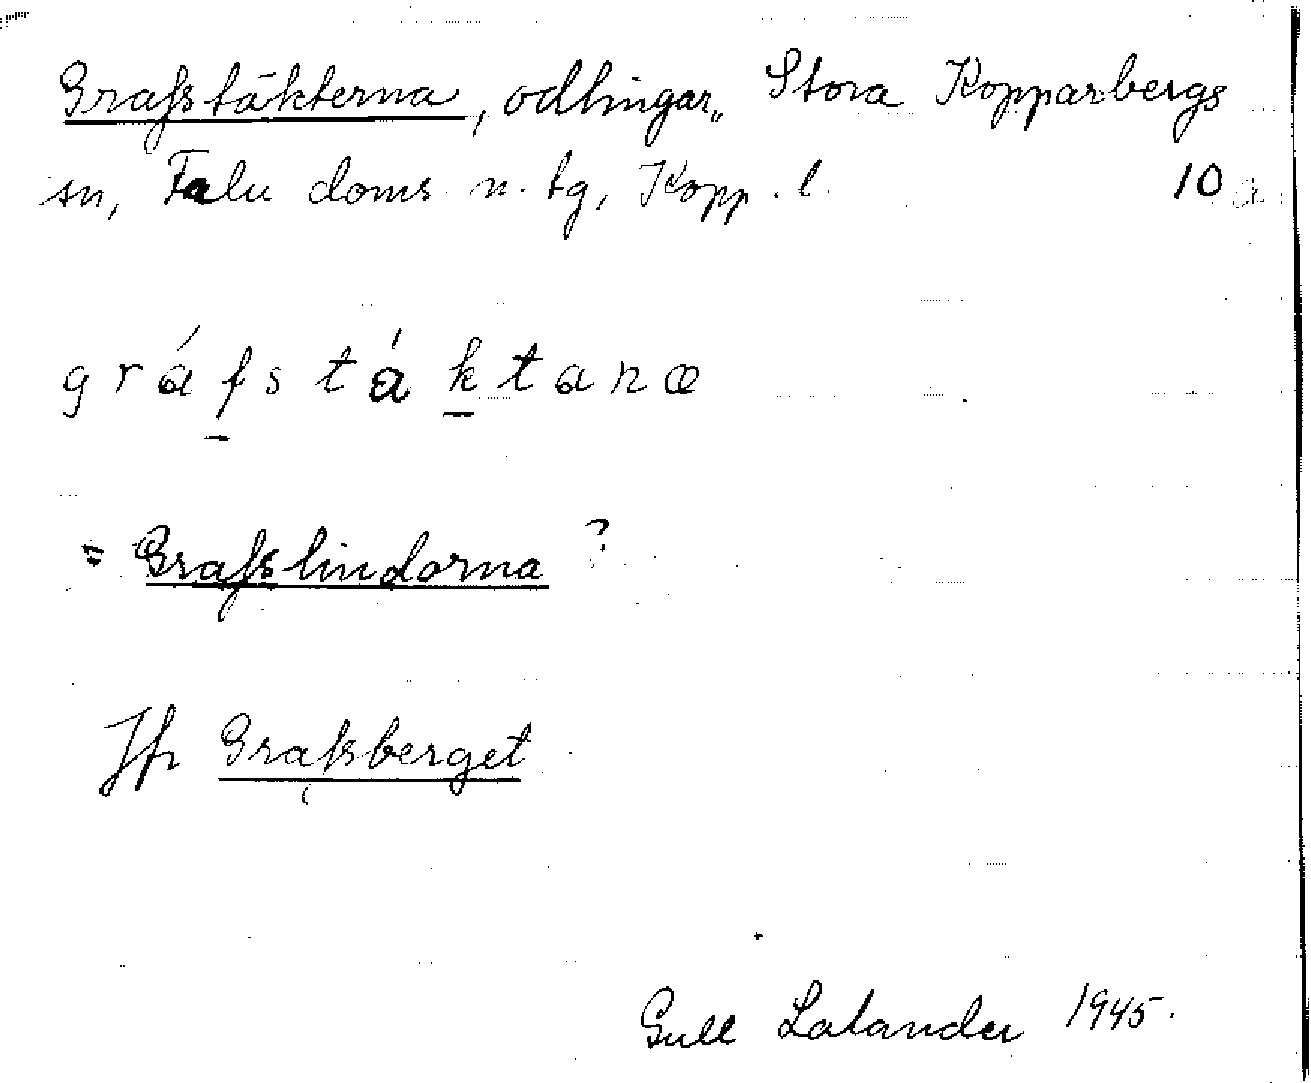 Grafstäkterna, odlingar, Stora Kopparbergs
sn, Falu doms. n. tg, Kopp. l. 10 a
gráfstáktanæ
= Grafslindorna ?
Jfr Grafsberget
Gull Lalander 1945.